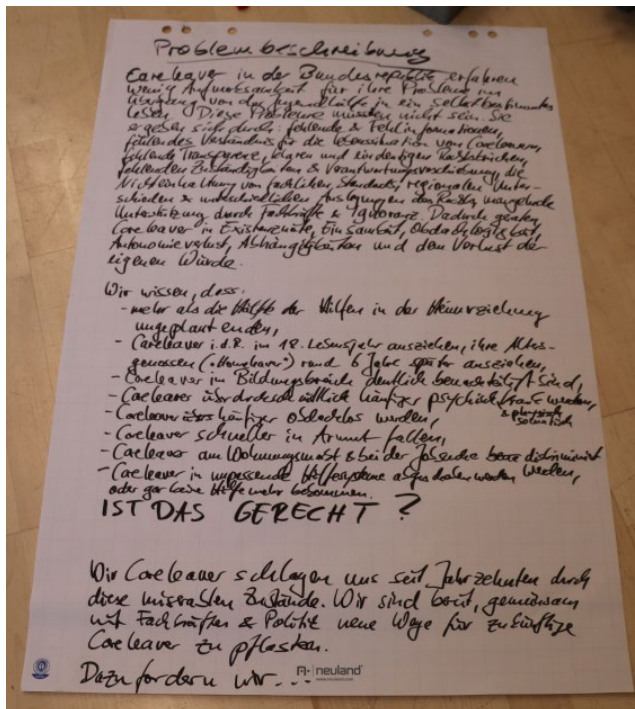 Problembeschreibung
Careleaver in der Bundesrepublik erfahren
wenig Aufmerksamkeit für ihre Probleme im
Übergang von der Jugendhilfe in ein selbstbestimmtes
Leben. Diese Probleme müssten nicht sein. Sie
ergeben sich durch: fehlende & Fehlinformationen,
fehlendes Verständnis für die Lebenssituation von Careleavern,
fehlende Transparenz, klaren und eindeutigen Rechtsbrüchen,
fehlenden Zuständigkeiten & Verantwortungsverschiebung, die
Nichteinhaltung von fachlichen Standards, regionalen Unter-
schieden & unterschiedlichen Auslegungen des Rechts, mangelnde
Unterstützung durch Fachkräfte & Ignoranz. Dadurch geraten
Careleaver in Existenznöte, Einsamkeit, Obdachlosigkeit,
Autonomieverlust, Abhängigkeiten und dem Verlust der
eigenen Würde.
Wir wissen, dass:
- mehr als die Hälfte der Hilfen in der Heimerziehung
ungeplant enden,
- Careleaver i.d.R. im 18. Lebensjahr ausziehen, ihre Alters-
genossen ("Homeleaver") rund 6 Jahre später ausziehen,
- Careleaver im Bildungsbereich deutlich benachteiligt sind,
- Careleaver überdurchschnittlich häufiger psychisch krank werden,
& physisch
somatisch
- Careleaver häufiger obdachlos werden,
- Careleaver schneller in Armut fallen,
- Careleaver am Wohnungsmarkt & bei der Jobsuche diskriminiert
werden,
- Careleaver in unpassende Hilfesysteme abgeschoben werden
oder gar keine Hilfe mehr bekommen.
IST DAS GERECHT?
Wir Careleaver schlagen uns seit Jahrzehnten durch
diese miserablen Zustände. Wir sind bereit, gemeinsam
mit Fachkräften & Politik neue Wege für zukünftige
Careleaver zu pflastern.
Dazu fordern wir...
neuland
www.neuland.com